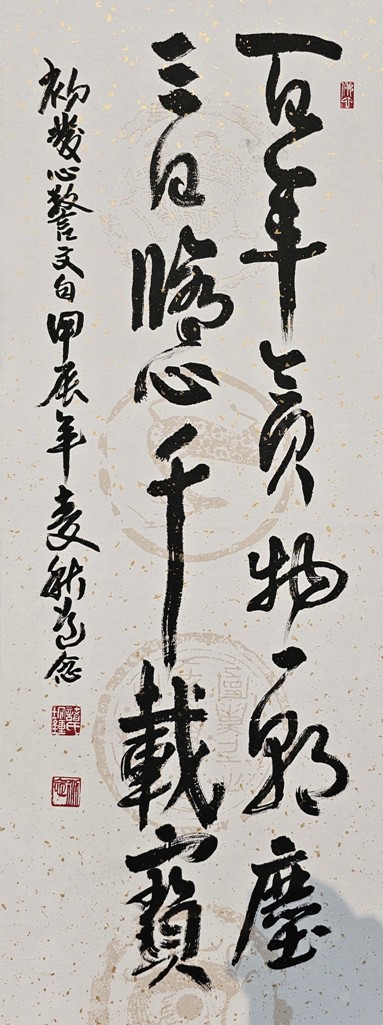 百年貪物一朝塵
三日脩心千載寶
初發心警文自甲辰年麦秋